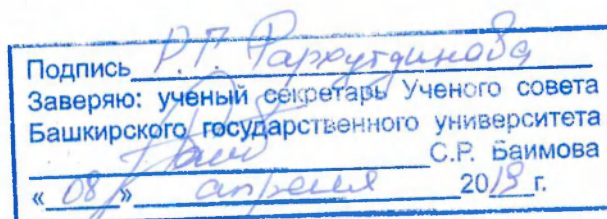 Подпись Р.Г. Фархутдинова
Заверяю: ученый секретарь Ученого совета
Башкирского государственного университета
С.Р. Баимова
« 08 » апреля 2019 г.